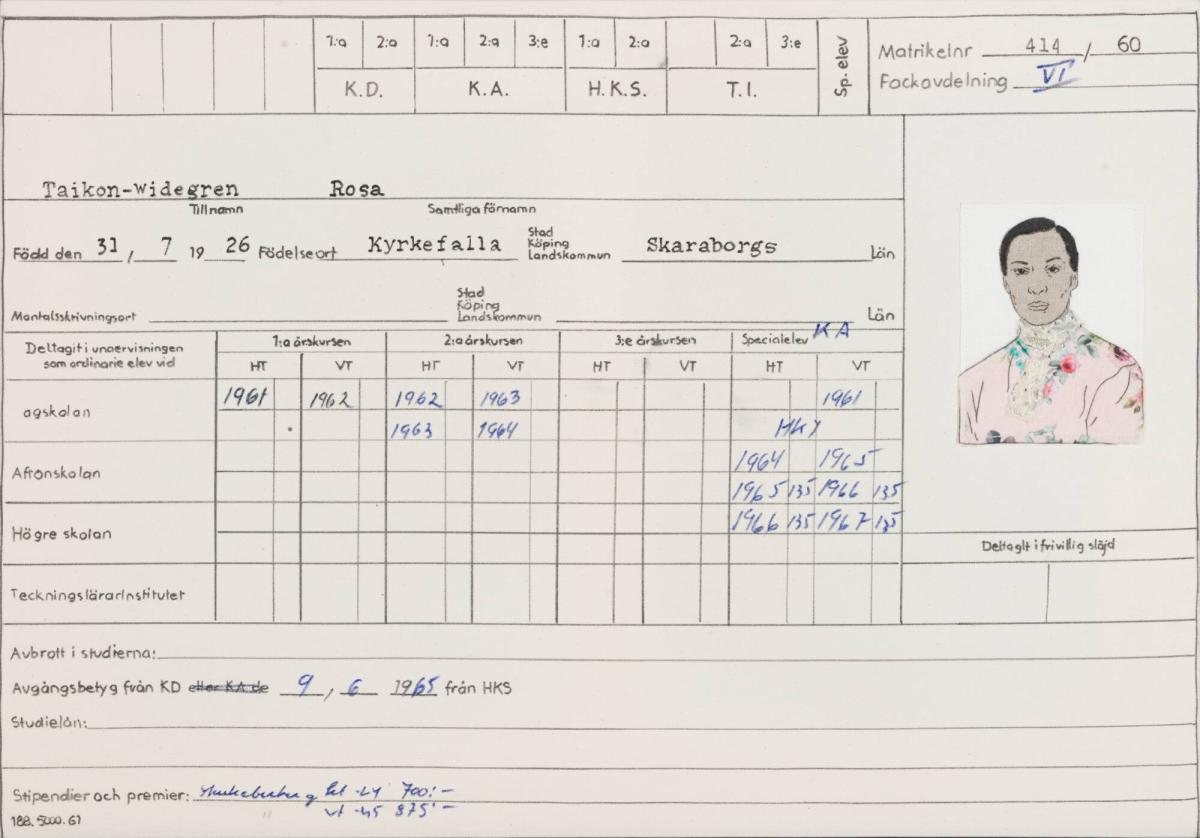 1:a 2:a 1:a 2:a 3:e 1:a 2:a 2:a 3:e
K.D. K.A. H.K.S. T.I. Sp. elev
Matrikelnr 414 / 60
Fackavdelning VI
Taikon-Widegren Rosa
Tillnamn Samtliga förnamn
Född den 31 / 7 19 26 Födelseort Kyrkefalla Stad Köping Landskommun Skaraborgs Län
Mantalsskrivningsort Stad Köping Landskommun Län
Deltagit i undervisningen som ordinarie elev vid 1:a årskursen 2:a årskursen 3:e årskursen Specialelev KA
HT VT HT VT HT VT HT VT
agskolan 1961 1962 1962 1963 1961
1963 1964 HKS
Aftonskolan 1964 1965
1965 135 1966 135
Högre skolan 1966 135 1967 135
Deltagit i frivillig slöjd
Teckningslärarinstitutet
Avbrott i studierna:
Avgångsbetyg från KD eller KA de 9 / 6 1965 från HKS
Studielån:
Stipendier och premier: 700:-
vt 875:-
188. 5000. 61